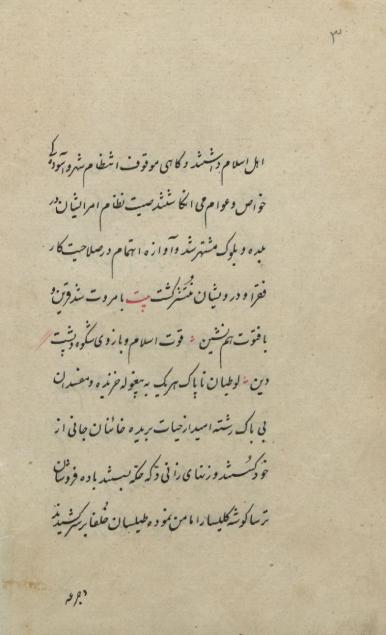 ۳
اهل اسلام داشتند و کاهی موقوف انتظام شهر و آسودگی
خواص و عوام می انکاشتند صیت نظام امر ایشان در
بلده و بلوک مشتهر شد و آوازه اهتمام در صلاحیت کار
فقرا و درویشان منتشر کشت بیت با مروت شد قرین و
با فتوت هم نشین قوت اسلام و بازوی شکوه و پشت
دین لوطیان ناپاک هر یک به بیغوله خزنده و مفسدان
بی باک رشته امید از حیات بریده خائنان جانی از
خود کسستند و زنهای زانی دکه حکه ببستند باده فروشان
ترسا کوشه کلیسا را مامن نموده طیلسان خلفا بر سر کشیدند